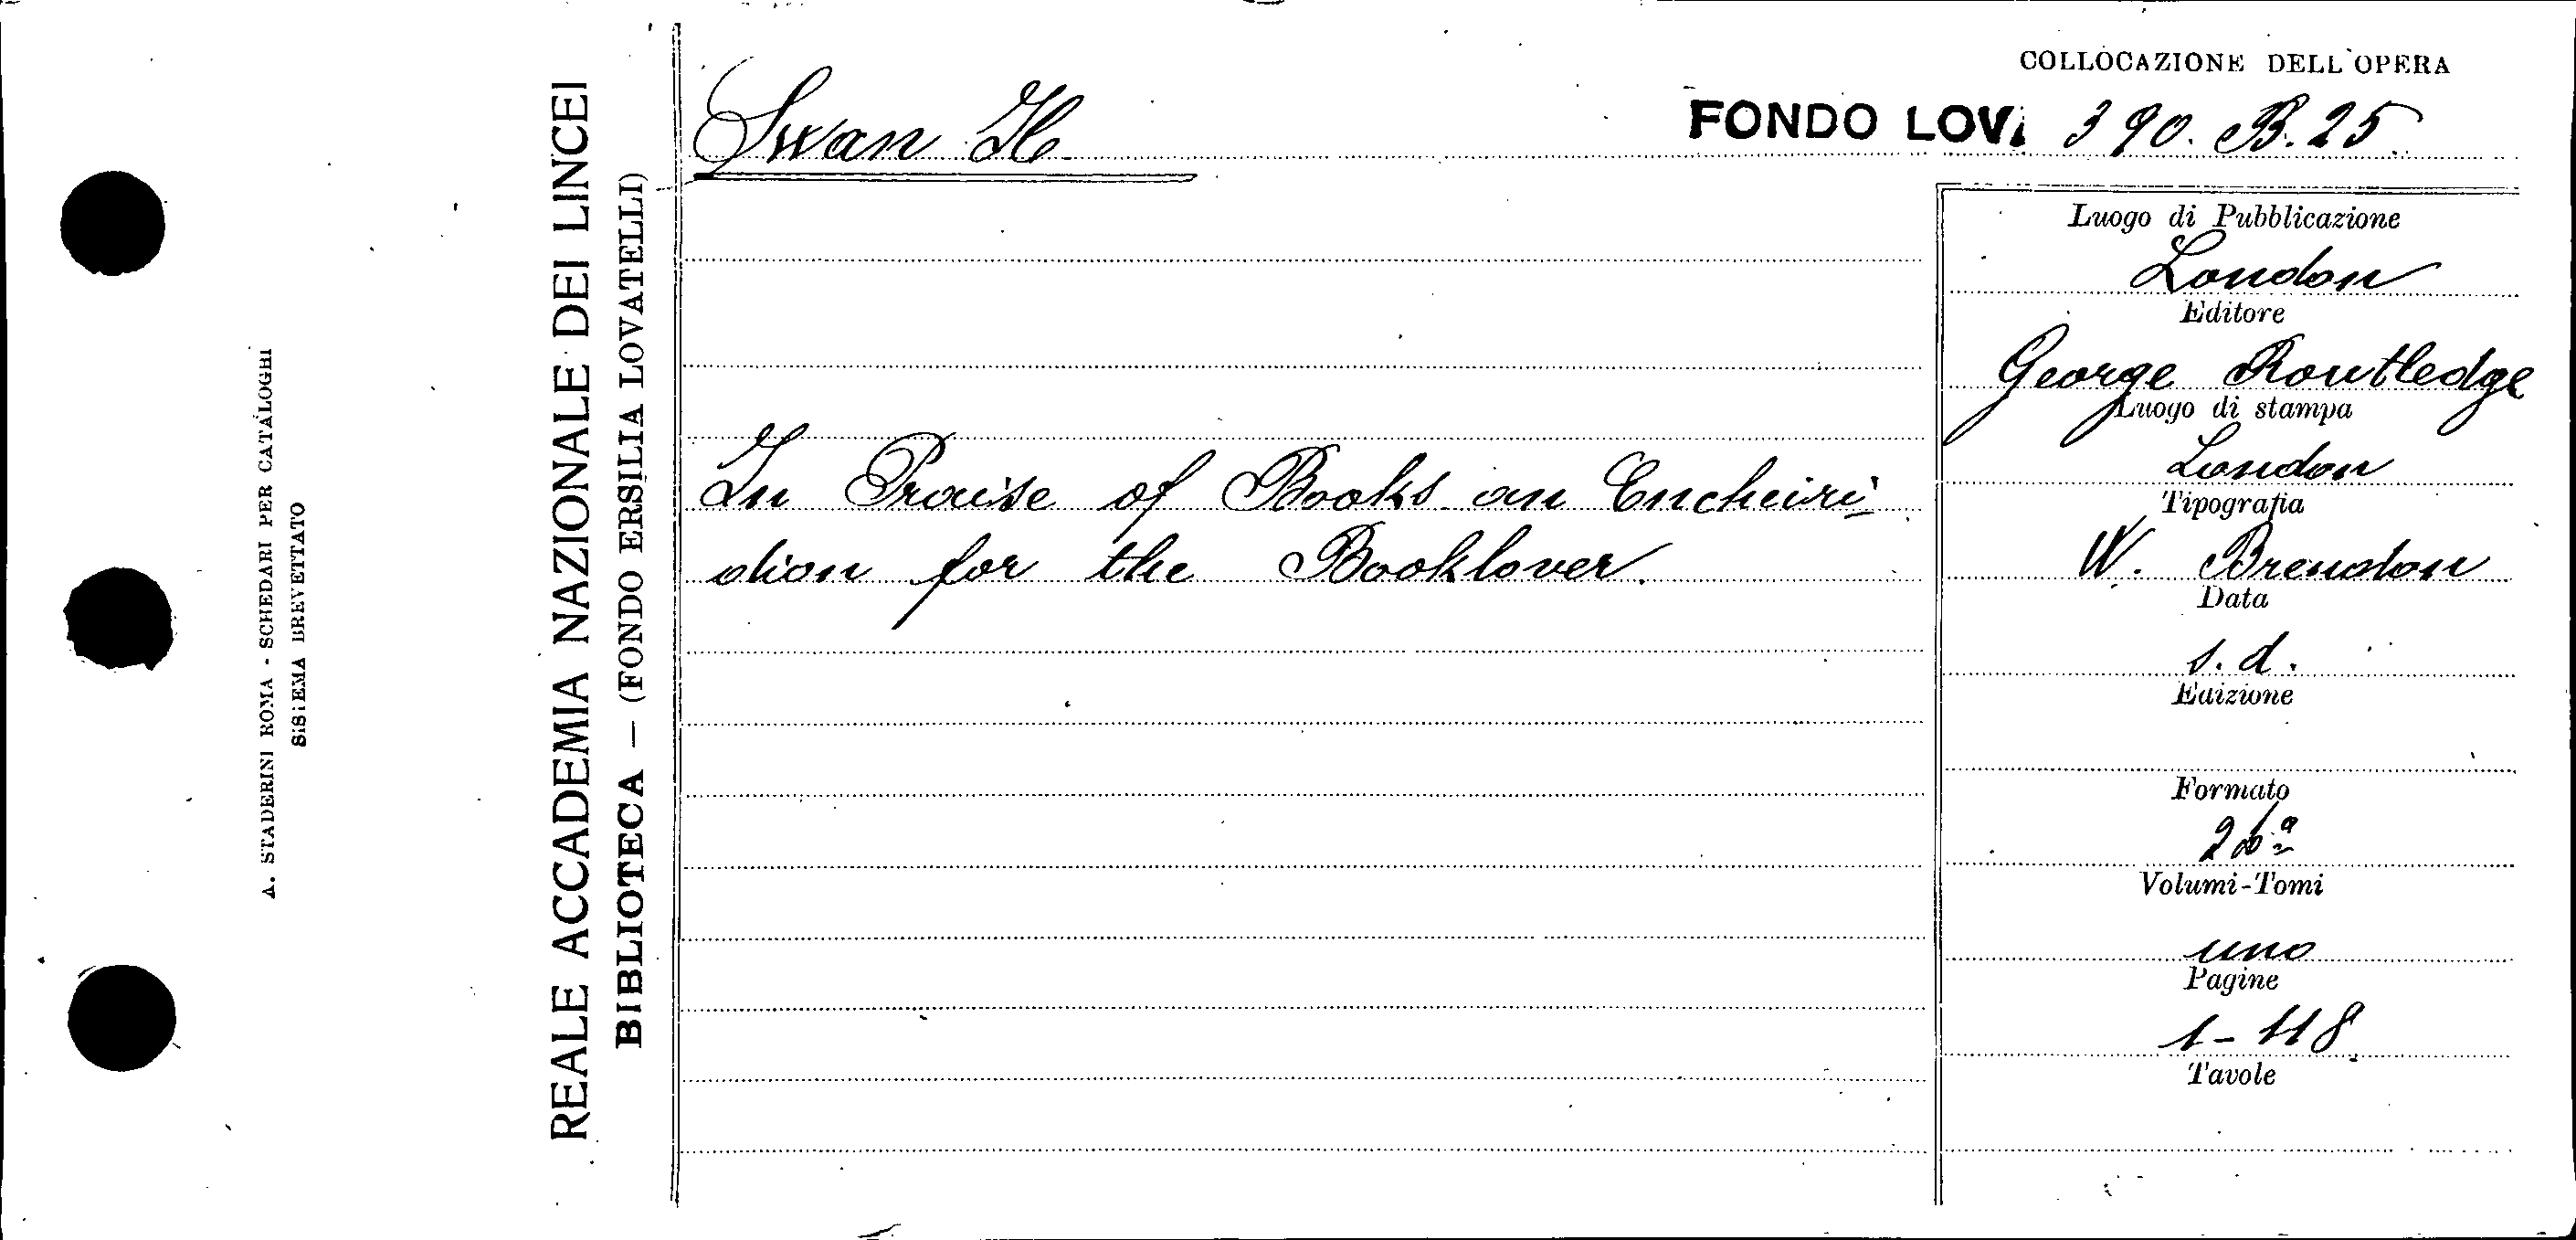 COLLOCAZIONE DELL'OPERA
FONDO LOV. 390. B. 25
Swan H.
In Praise of Books an Encheiri-
dion for the Booklover.
Luogo di Pubblicazione
London
Editore
George Routledge
Luogo di stampa
London
Tipografia
W. Brendon
Data
s. d.
Edizione
Formato
Volumi-Tomi
uno
Pagine
1-118
Tavole
REALE ACCADEMIA NAZIONALE DEI LINCEI
BIBLIOTECA — (FONDO ERSILIA LOVATELLI)
A. STADERINI ROMA - SCHEDARI PER CATALOGHI
SISTEMA BREVETTATO